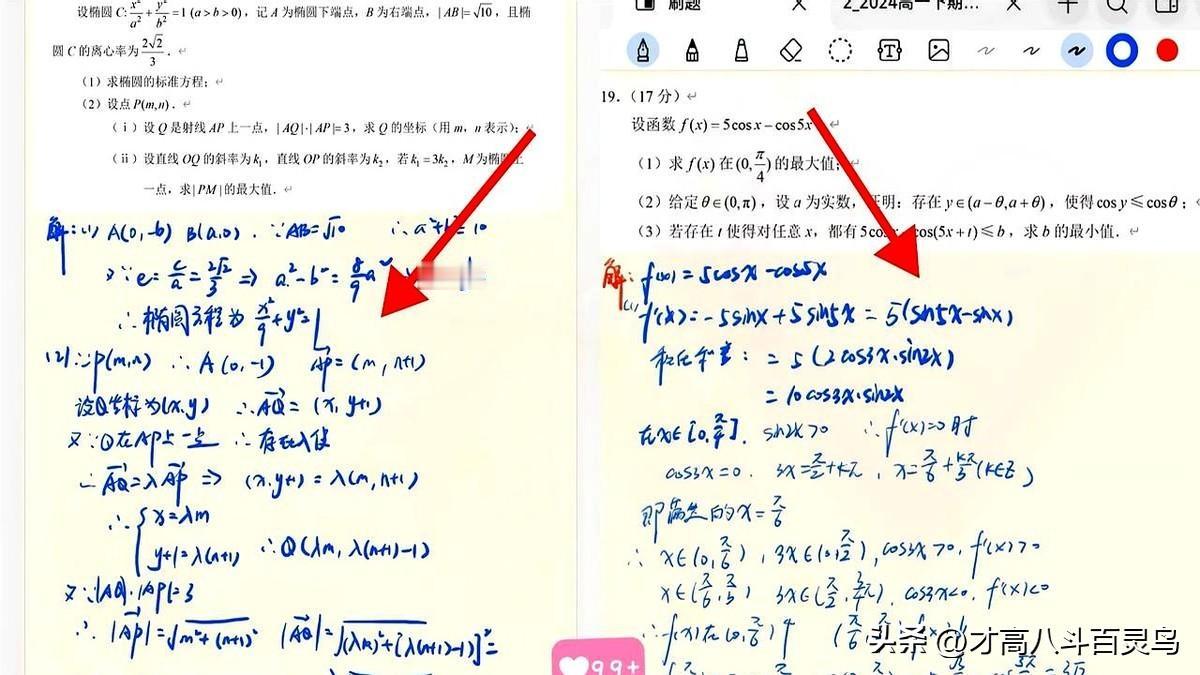 设椭圆 C: x²/a² + y²/b² = 1 (a > b > 0)，记 A 为椭圆下端点，B 为右端点，|AB| = √10，且椭
圆 C 的离心率为 2√2/3．
（1）求椭圆的标准方程；
（2）设点 P(m,n)．
（ⅰ）设 Q 是射线 AP 上一点，|AQ|·|AP| = 3，求 Q 的坐标（用 m，n 表示）；
（ⅱ）设直线 OQ 的斜率为 k₁，直线 OP 的斜率为 k₂，若 k₁ = 3k₂，M 为椭圆上
一点，求 |PM| 的最大值．
解：(1) A(0,-b) B(a,0)． ∵AB=√10 ∴a²+b²=10
又∵e=c/a=2√2/3 ⇒ a²-b²=8/9a²
∴椭圆方程为 x²/9+y²=1
(2)∵P(m,n) ∴A(0,-1) AP=(m,n+1)
设Q坐标为(x,y) ∴AQ=(x,y+1)
又∵Q在AP上一点 ∴存在λ使
∴AQ=λAP ⇒ (x,y+1)=λ(m,n+1)
∴{x=λm
y+1=λ(n+1) ∴Q(λm,λ(n+1)-1)
又∵|AQ|·|AP|=3
∴|AP|=√m²+(n+1)² |AQ|=√(λm)²+[λ(n+1)-1)]²=
刷题
2_2024高一下期...
19.（17 分）
设函数 f(x) = 5cosx − cos5x
（1）求 f(x) 在 (0, π/4) 的最大值；
（2）给定 θ∈(0,π)，设 a 为实数，证明：存在 y∈(a−θ,a+θ)，使得 cos y ≤ cosθ；
（3）若存在 t 使得对任意 x，都有 5cosx cos(5x+t) ≤ b，求 b 的最小值．
解：f(x)=5cosx-cos5x
(1) f'(x)=-5sinx+5sin5x=5(sin5x-sinx)
和化积：=5(2cos3x·sin2x)
=10cos3x·sin2x
在x∈[0,π/4]． sin2x>0 ∴f'(x)=0时
cos3x=0． 3x=π/2+kπ，x=π/6+kπ/3(k∈Z)
即满足的x=π/6
∴x∈(0,π/6)，3x∈(0,π/2)，cos3x>0，f'(x)>0
x∈(π/6,π/3) 3x∈(π/2,3/4π)．cos3x<0．f'(x)<0
∴f(x)在(0,π/6)↑
头条 @才高八斗百灵鸟
99+